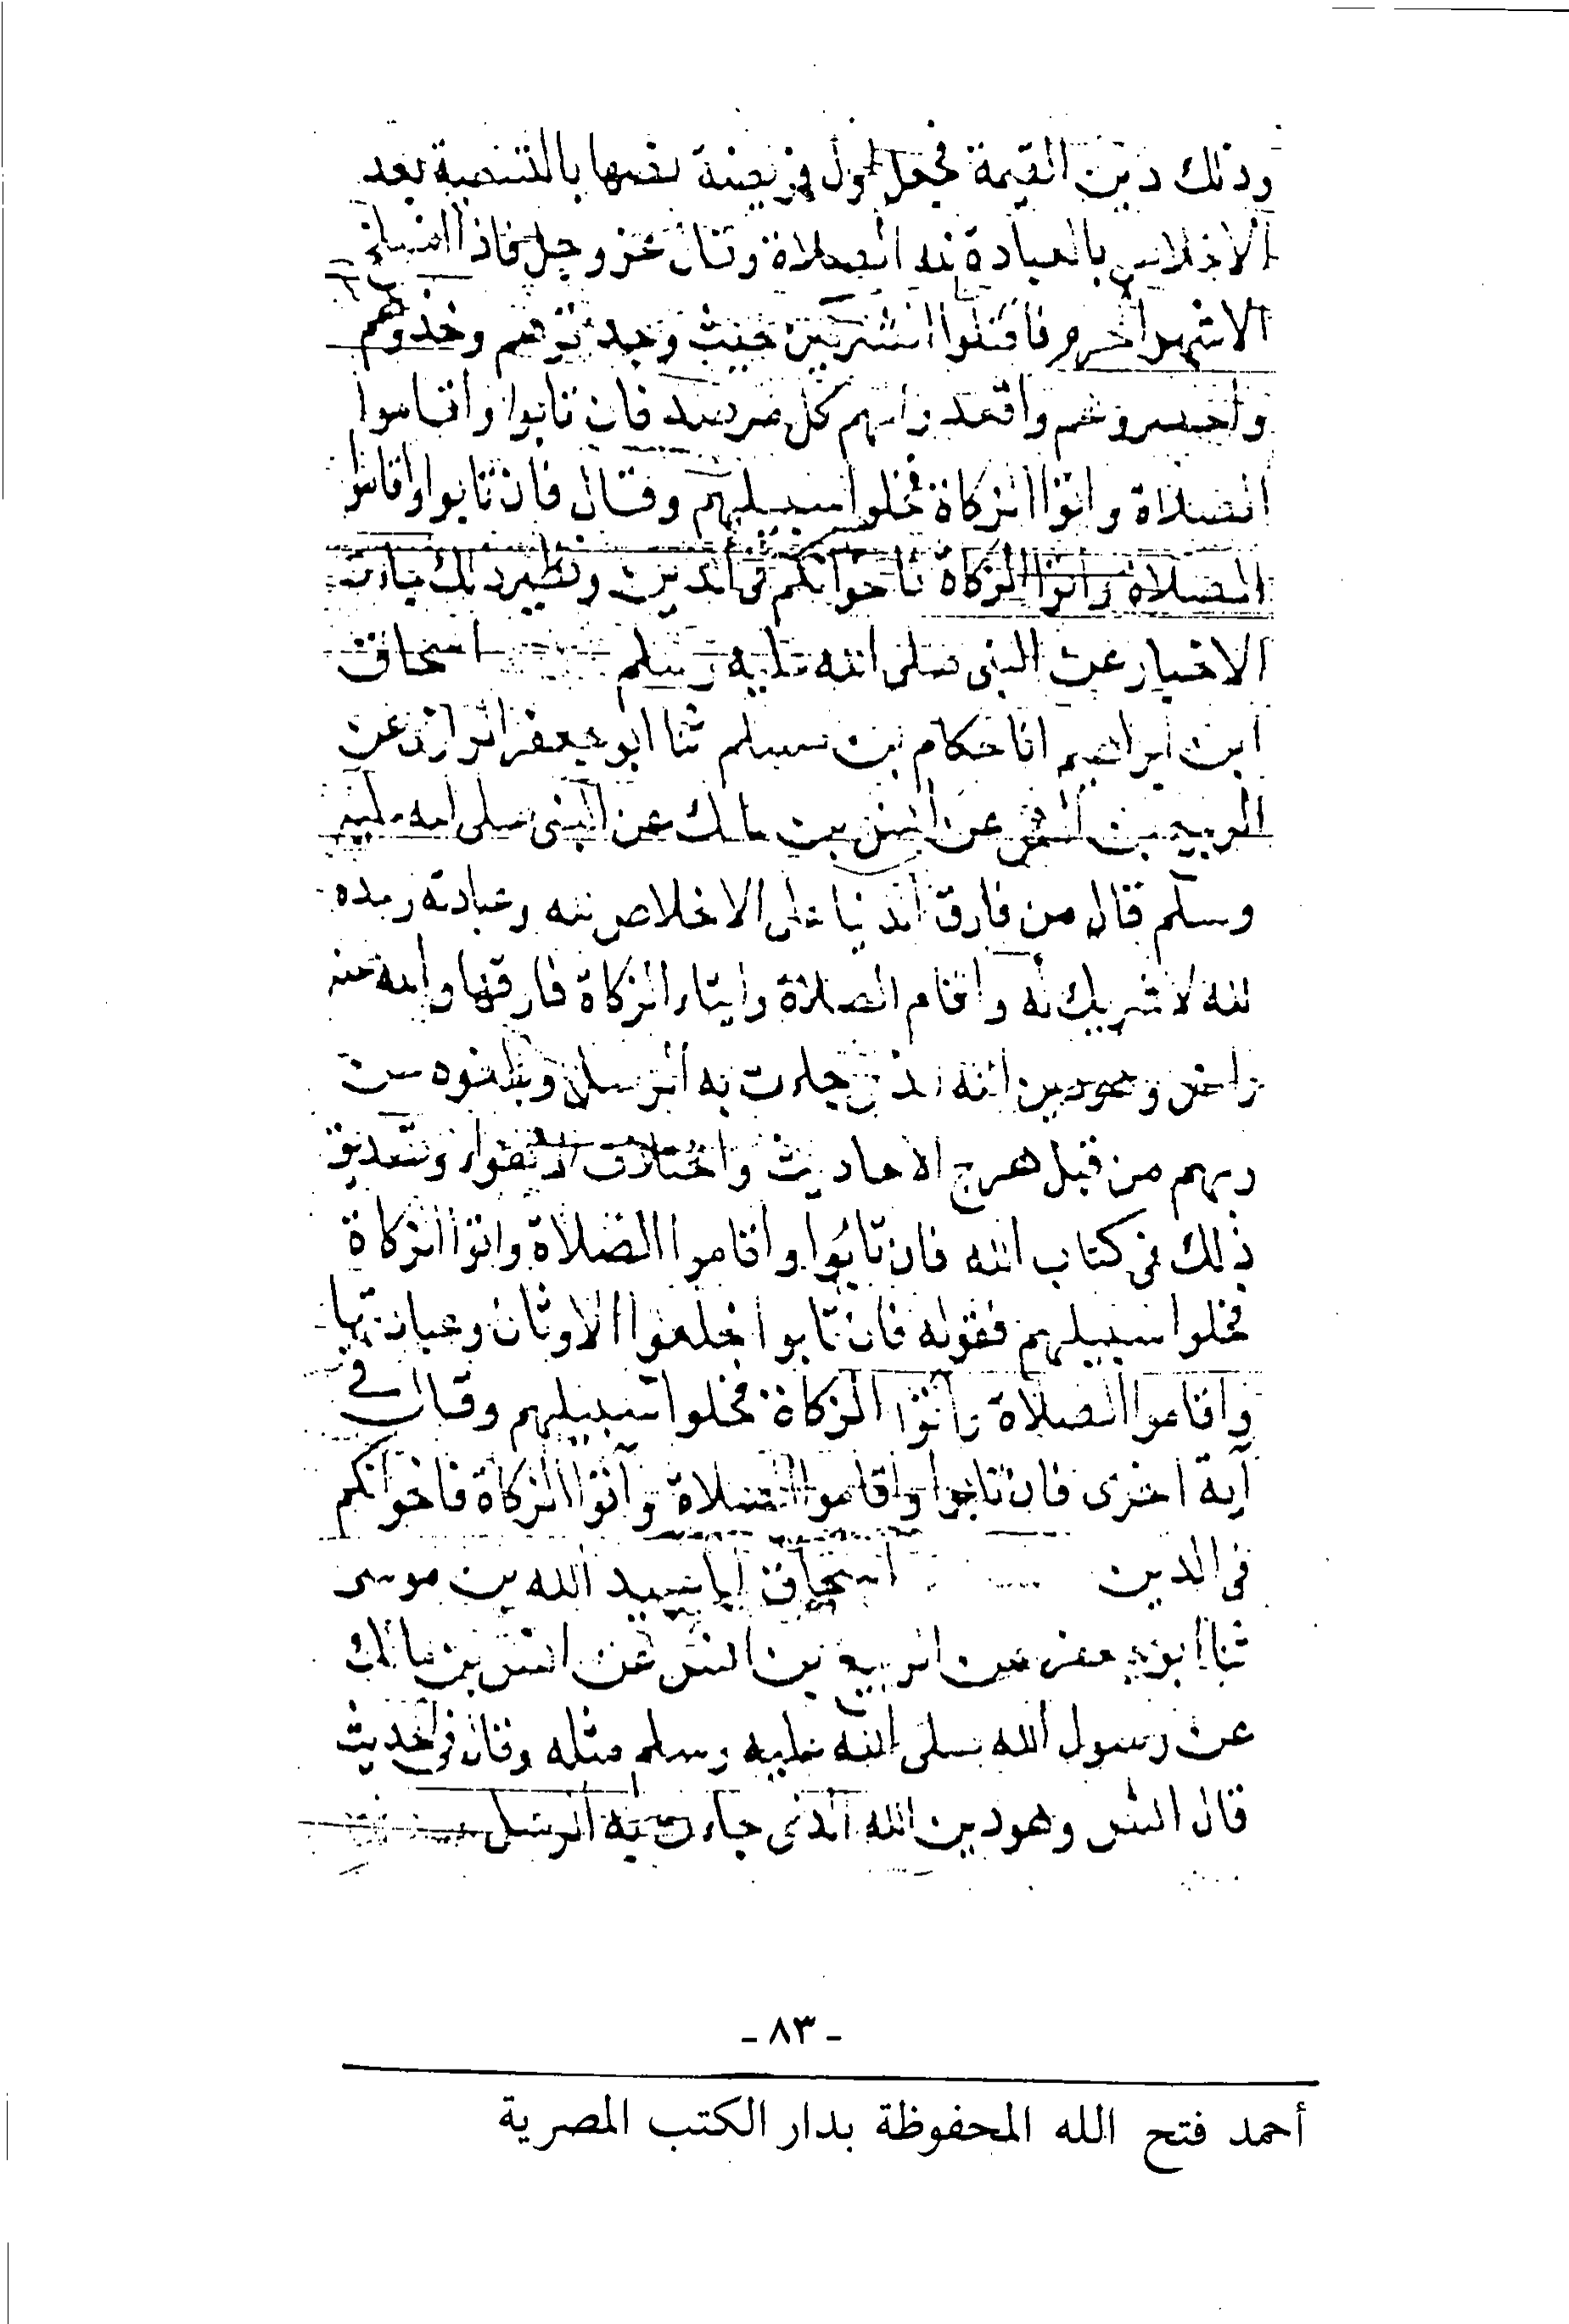 وذلك دين القيمة فجعل اول فريضة نصها بالتسمية بعد
الاخلاص بالعبادة لله الصلاة وقال عز وجل فاذا انسلخ
الاشهر الحرم فاقتلوا المشركين حيث وجدتموهم وخذوهم
واحصروهم واقعدوا لهم كل مرصد فان تابوا واقاموا
الصلاة واتوا الزكاة فخلوا سبيلهم وقال فان تابوا واقاموا
الصلاة واتوا الزكاة فاخوانكم فى الدين ونظير ذلك جاءت
الاخبار عن النبى صلى الله عليه وسلم اسحاق
ابن ابراهيم انا حكام بن سلم ثنا ابو جعفر الرازى عن
الربيع بن انس عن انس بن مالك عن النبى صلى الله عليه
وسلم قال من فارق الدنيا على الاخلاص لله وعبادته وحده
لله لا شريك له واقام الصلاة وايتاء الزكاة فارقها والله عنه
راض وهو دين الله الذى جاءت به الرسل وبلغوه عن
ربهم من قبل هرج الاحاديث واختلاف الاهواء وتصديق
ذلك فى كتاب الله فان تابوا واقاموا الصلاة واتوا الزكاة
فخلوا سبيلهم فقوله فان تابوا خلعوا الاوثان وعبادتها
واقاموا الصلاة وأتوا الزكاة فخلوا سبيلهم وقال فى
آية اخرى فان تابوا واقاموا الصلاة وآتوا الزكاة فاخوانكم
فى الدين اسحاق انا عبيد الله بن موسى
ثنا ابو جعفر عن الربيع بن انس عن انس بن مالك
عن رسول الله صلى الله عليه وسلم مثله وقال فى الحديث
قال انس وهو دين الله الذى جاءت به الرسل
- ٨٣ -
أحمد فتح الله المحفوظة بدار الكتب المصرية